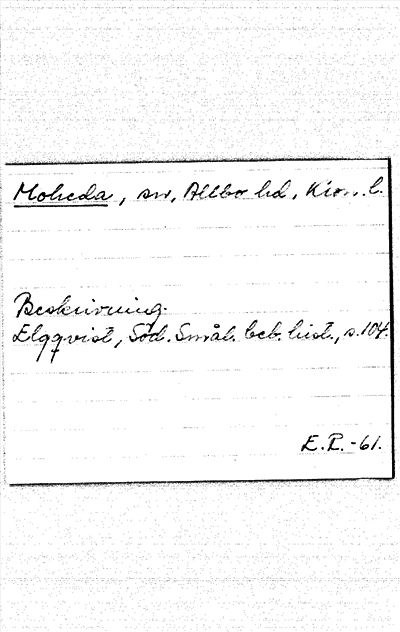 Moheda, sn, Allbo hd, Kron. l.
Beskrivning.
Elgqvist, Söd. Smål. beb. hist., s. 104.
E.R.-61.